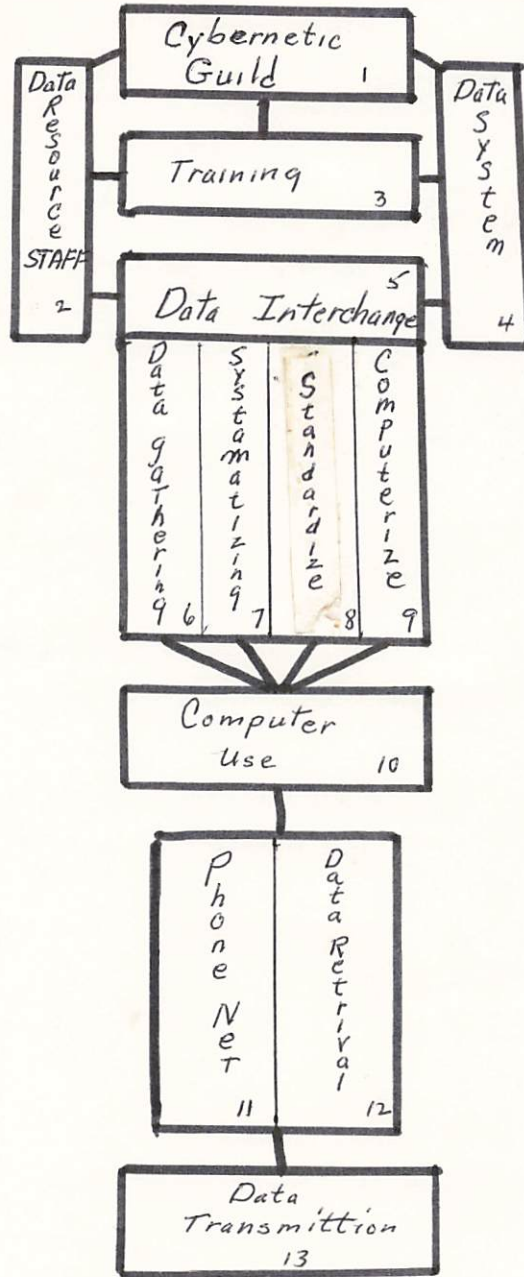 Cybernetic
Guild 1
Data
Resource
STAFF
2
Training
3
Data
System
4
5
Data Interchange
Data gathering 6
Systamatizing 7
Standardize 8
Computerize 9
Computer
Use 10
Phone Net
11
Data Retrival
12
Data
Transmittion
13